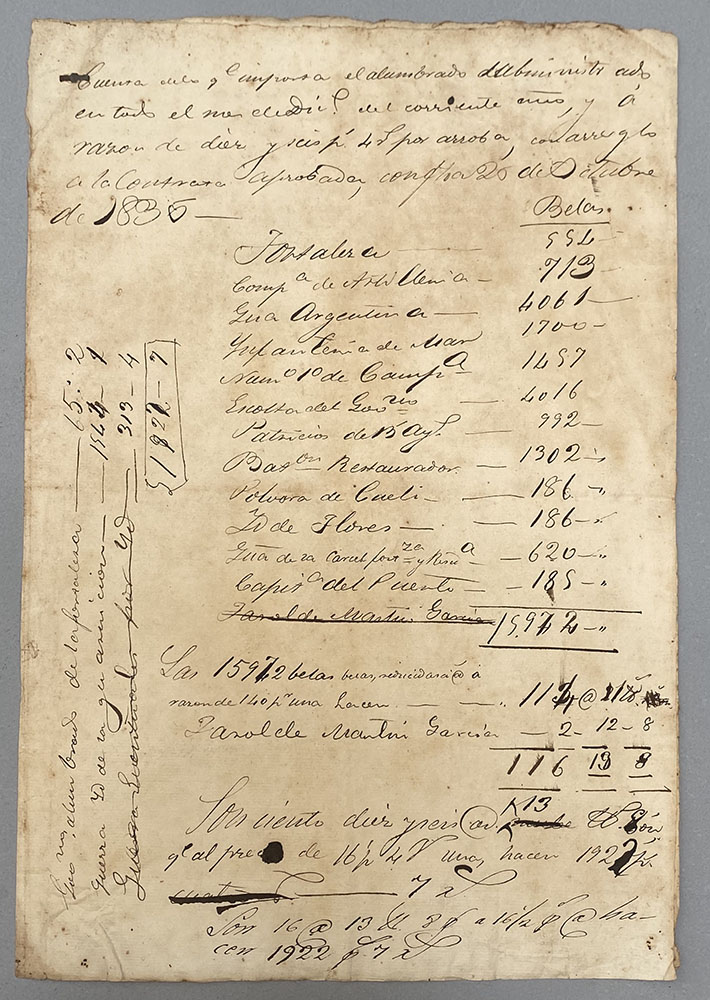 Cuenta delo qe. importa el alumbrado subministrado
en todo el mes de Dice. del corriente año, y á
razon de diez y seis ps. 4 rs. por arroba, con arreglo
a la Contrata aprobada, con fha 20 de Octubre
de 1836 —
Belas
Fortaleza — 554 —
Compa. de Artilleria — 713 —
Gua Argentina — 4061 —
Ynfanteria de Mar 1700 —
Numo. 1o de Campa. 1457
Escolta del Govno — 4016
Patricios de B. Ays. — 992 —
Baton Restaurador — 1302 — "
Polvora de Cueli — 186 — "
Yd de Flores — 186 — "
Gua de la Carcel, fortza y Resa — 620 — "
Capita. del Puerto — 185 — "
Farol de Martin Garcia 15972 — "
Las 15972 belas reducidas a @ á
razon de 140 ps. una hacen — " 114 @
Farol de Martin Garcia — 2 — 12 — 8
116 13 8
13
Son ciento diez y seis @ on.
qe. al precio de 16 ps 4 rs una, hacen 1922 ps.
7 rs
Son 16 @ 13 ll 8 a 16 1/2 @ ha-
cen 1922 ps 7 rs
Govno, alumbrado de la fortaleza — 65 : 2
Guerra Yd de la guarnicion — 1544 — 1
Guerra por Yd — 313 — 4
$ 1922 — 7